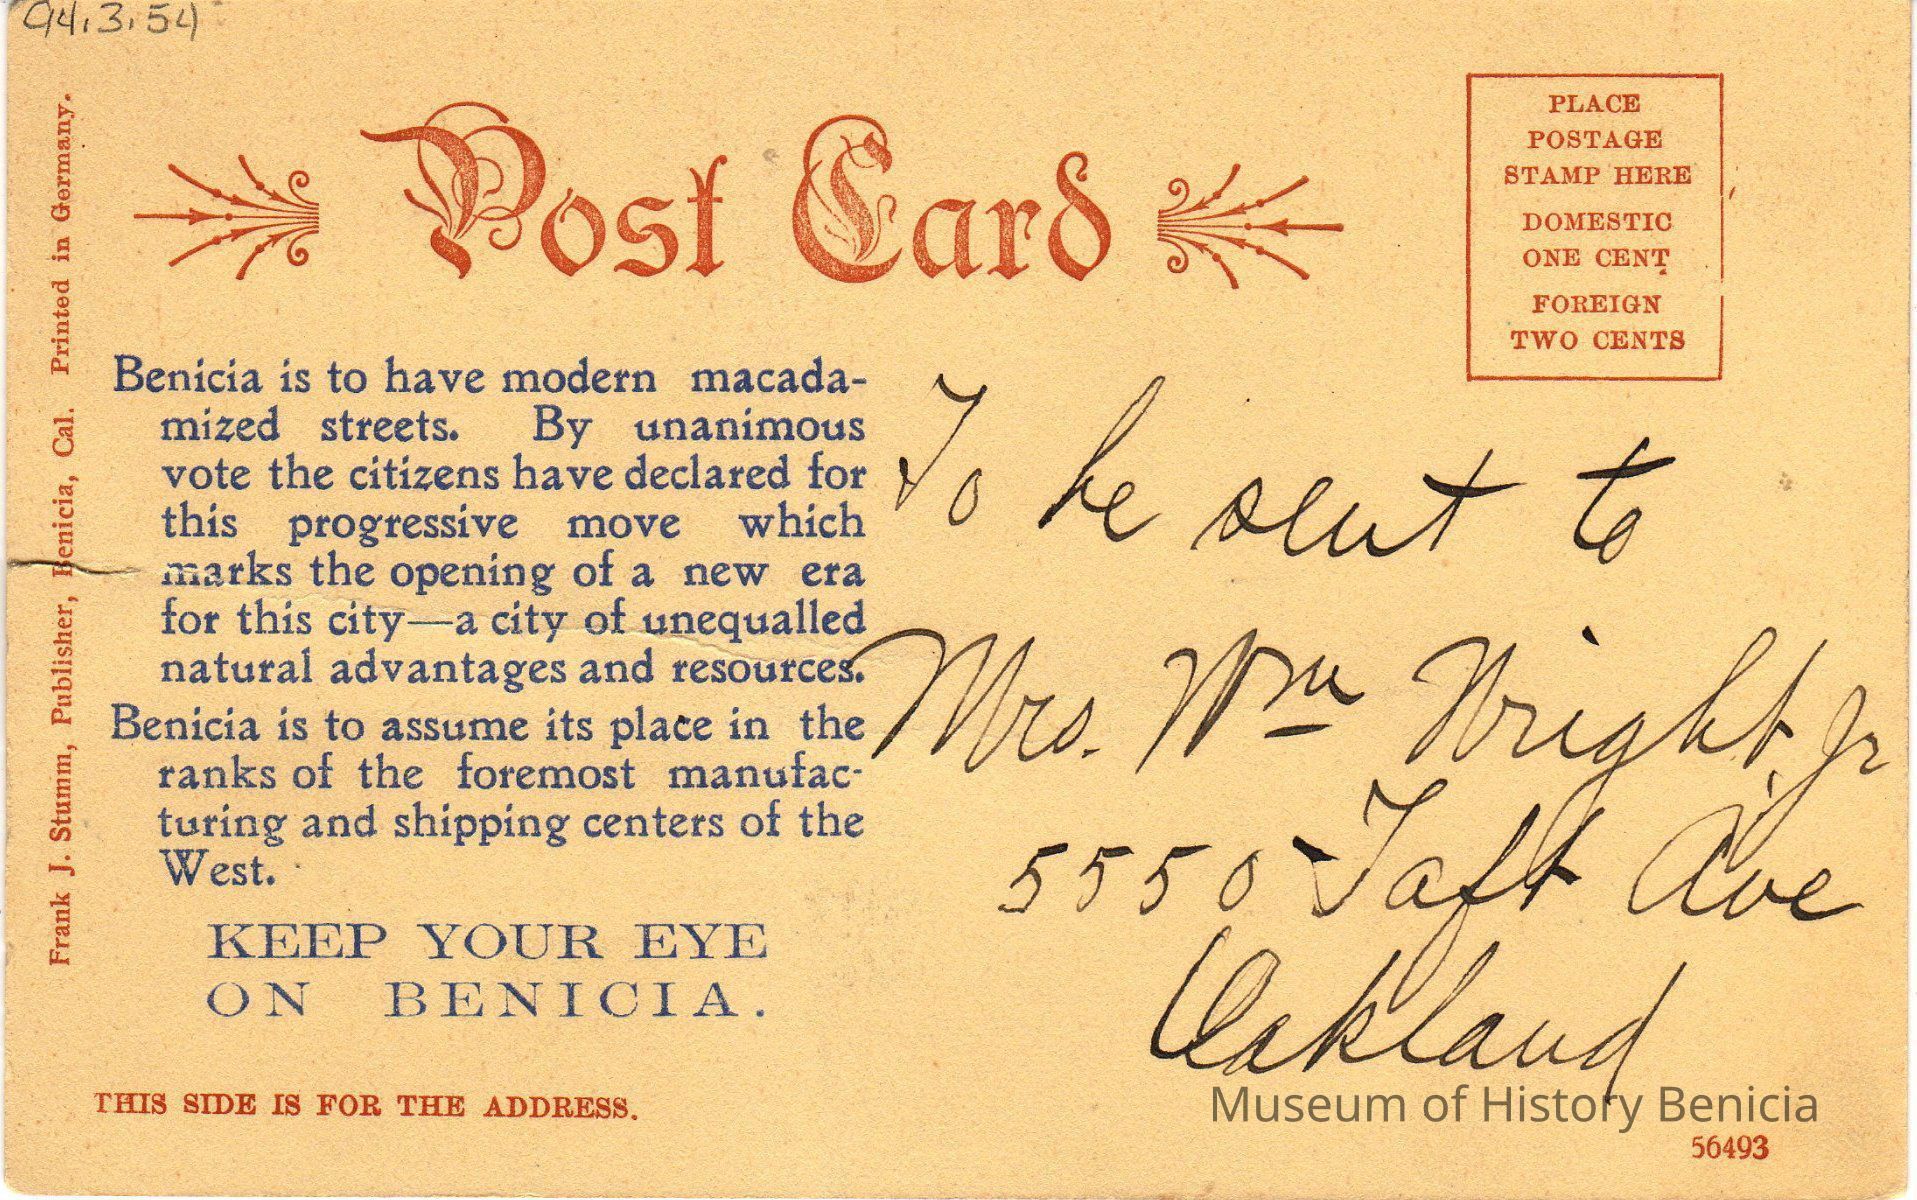 94.3.54
Post Card
PLACE
POSTAGE
STAMP HERE
DOMESTIC
ONE CENT
FOREIGN
TWO CENTS
Frank J. Stumm, Publisher, Benicia, Cal. Printed in Germany.
Benicia is to have modern macada-
mized streets. By unanimous
vote the citizens have declared for
this progressive move which
marks the opening of a new era
for this city—a city of unequalled
natural advantages and resources.
Benicia is to assume its place in the
ranks of the foremost manufac-
turing and shipping centers of the
West.
KEEP YOUR EYE
ON BENICIA.
THIS SIDE IS FOR THE ADDRESS.
To be sent to
Mrs. Wm Wright, Jr
5550 Taft Ave
Oakland
Museum of History Benicia
56493